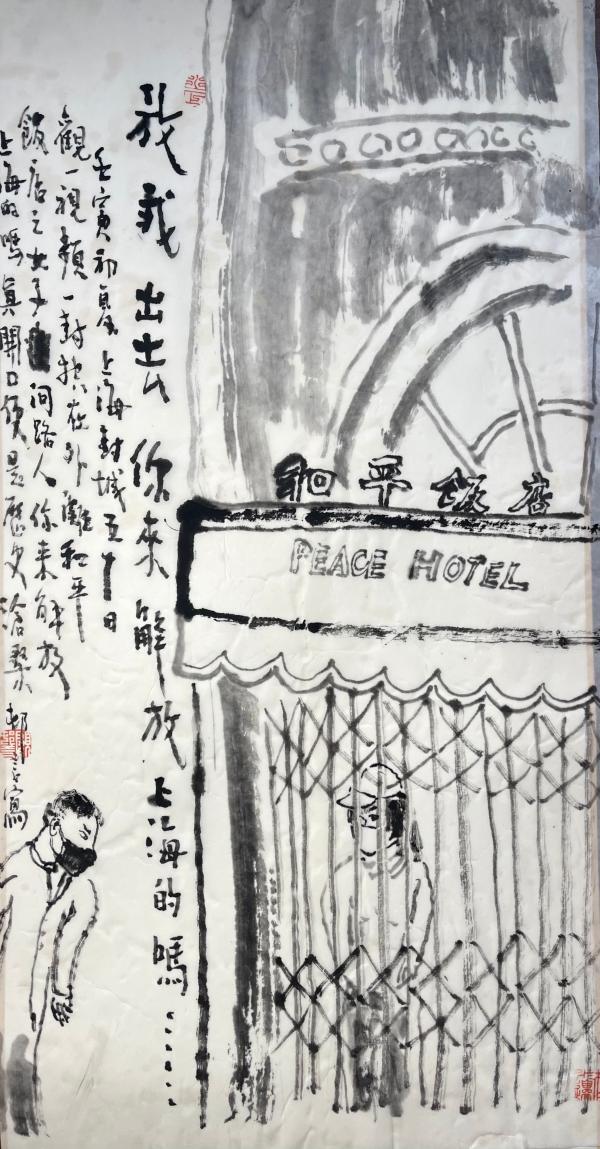 我出去 你來解放上海的嗎……
壬寅初夏上海封城五十日
觀一視頻一封控在外灘和平
飯店之女子問路人你來解放
上海的嗎真開口便是歷史滄桑
寫
和平飯店
PEACE HOTEL